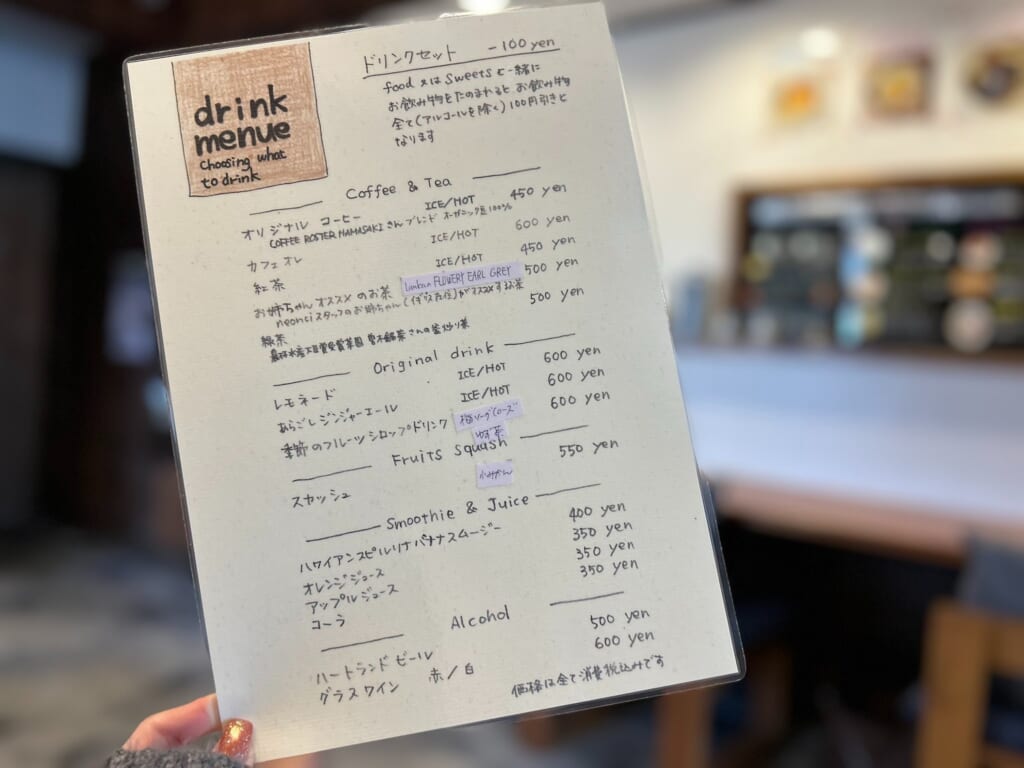 drink
menue
choosing what
to drink
ドリンクセット -100 yen
food 又は sweets と一緒に
お飲み物をたのまれると お飲み物
全て(アルコールを除く)100円引きと
なります
Coffee & Tea
オリジナル コーヒー ICE/HOT 450 yen
COFFEE ROSTER HAMASAKI さんブレンド オーガニック豆100%
カフェオレ ICE/HOT 600 yen
紅茶 ICE/HOT 450 yen
お姉ちゃんオススメのお茶 FLOWERY EARL GREY 500 yen
neontiスタッフのお姉ちゃん がオススメするお茶
緑茶 500 yen
さんの釜炒り茶
Original drink
レモネード ICE/HOT 600 yen
あらごしジンジャーエール ICE/HOT 600 yen
季節のフルーツシロップドリンク 600 yen
ゆず茶
Fruits squash
スカッシュ 小みかん 550 yen
Smoothie & Juice
ハワイアンスピルリナバナナスムージー 400 yen
オレンジジュース 350 yen
アップルジュース 350 yen
コーラ 350 yen
Alcohol
ハートランドビール 500 yen
グラスワイン 赤/白 600 yen
価格は全て消費税込みです